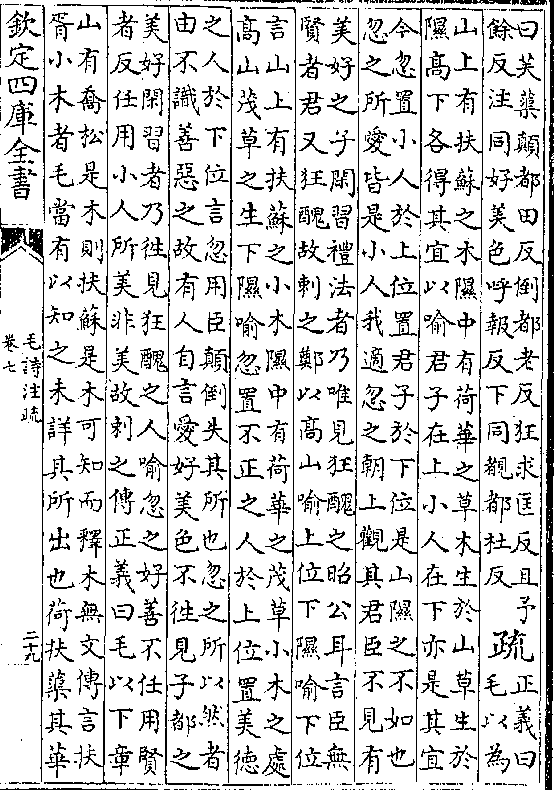 曰芙蕖顛都田反倒都老反狂求匡反且予
餘反注同好美色呼報反下同覩都杜反
疏
正義曰
毛以為
山上有扶蘇之木隰中有荷華之草木生於山草生於
隰高下各得其宜以喻君子在上小人在下亦是其宜
今忽置小人於上位置君子於下位是山隰之不如也
忽之所愛皆是小人我適忽之朝上觀其君臣不見有
美好之子閑習禮法者乃唯見狂醜之昭公耳言臣無
賢者君又狂醜故刺之鄭以高山喻上位下隰喻下位
言山上有扶蘇之小木隰中有荷華之茂草小木之處
高山茂草之生下隰喻忽置不正之人於上位置美德
之人於下位言忽用臣顛倒失其所也忽之所以然者
由不識善惡之故有人自言愛好美色不往見子都之
美好閑習者乃徃見狂醜之人喻忽之好善不任用賢
者反任用小人所美非美故刺之傳正義曰毛以下章
山有喬松是木則扶蘇是木可知而釋木無文傳言扶
胥小木者毛當有以知之未詳其所出也荷扶蕖其華
欽定四庫全書
毛詩注疏
卷七
二十九